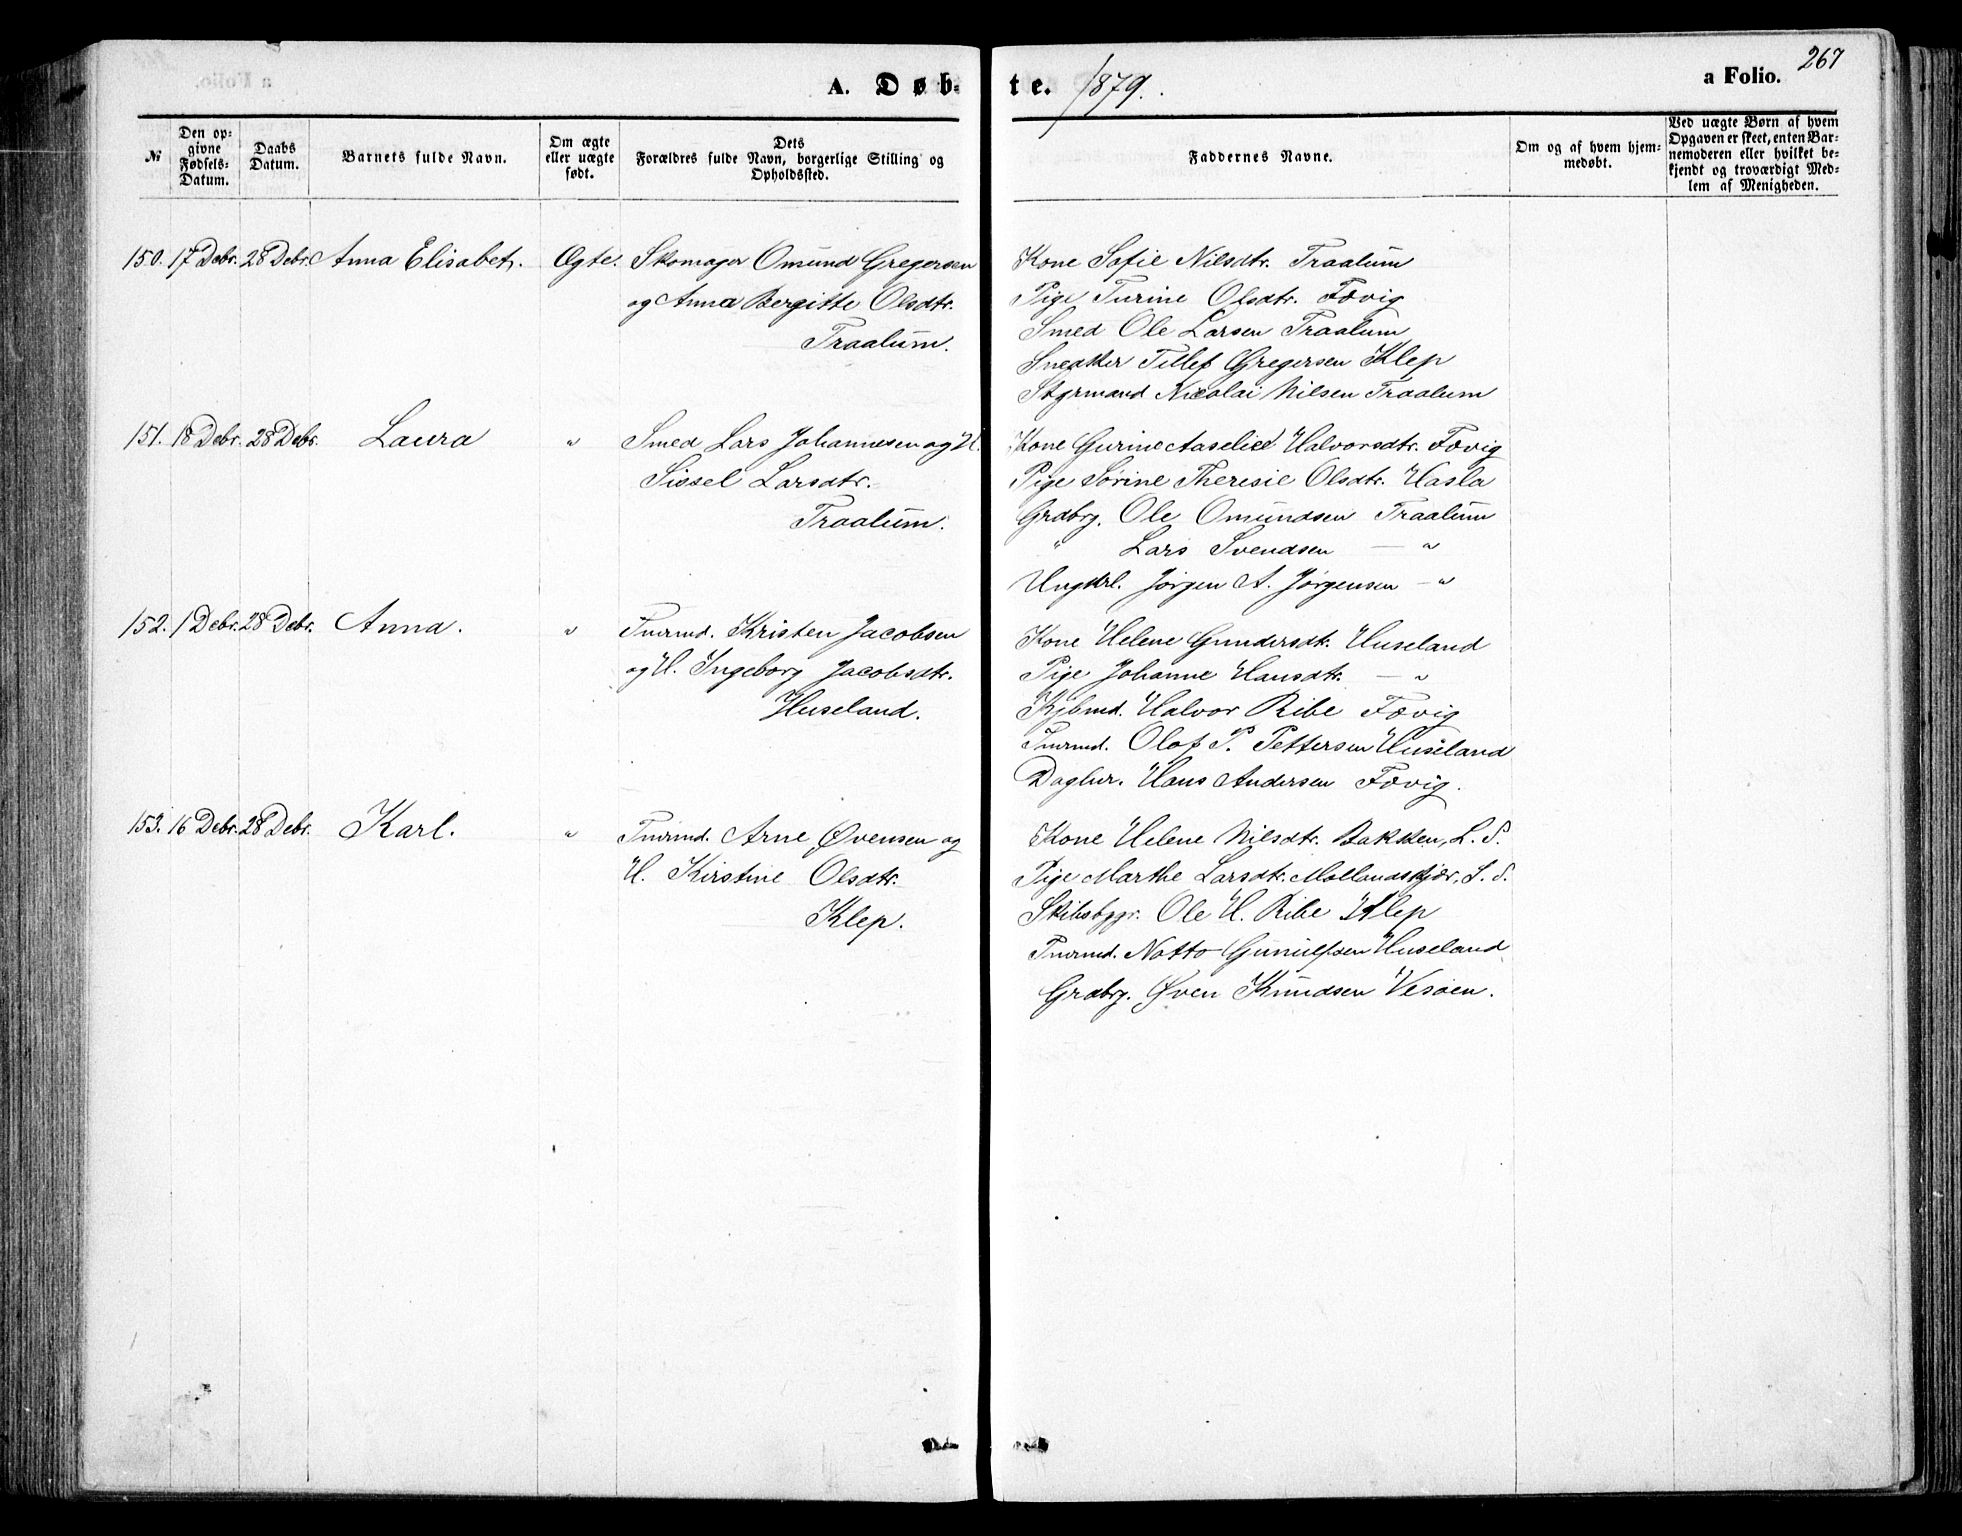 267
A. Døbte. 1879. a Folio.
№ Den opgivne Fødsels-Datum. Daabs Datum. Barnets fulde Navn. Om ægte eller uægte født. Dets Forældres fulde Navn, borgerlige Stilling og Opholdssted. Faddernes Navne. Om og af hvem hjemmedøbt. Ved uægte Børn af hvem Opgaven er skeet, enten Barnemoderen eller hvilket bekjendt og troværdigt Medlem af Menigheden.
150. 17 Debr. 28 Debr. Anna Elisabet. Ægte. Skomager Omund Gregersen
og Anna Bergitte Olsdtr.
Traalum.
Kone Sofie Nilsdtr. Traalum
Pige Turine Olsdtr. Fævig
Smed Ole Larsen Traalum
Snedker Tellef Gregersen Klep
Styrmand Nicolai Nilsen Traalum
151. 18 Debr. 28 Debr. Laura " Smed Lars Johannesen og H.
Sissel Larsdtr.
Traalum.
Kone Gurine Aaselie Halvorsdtr. Fævig
Pige Sørine Theresie Olsdtr. Hasla
Grdbrg. Ole Omundsen Traalum
" Lars Svendsen — "
Ungkrl. Jørgen A. Jørgensen — "
152. 1 Debr. 28 Debr. Anna. " Tmrmd. Kristen Jacobsen
og H. Ingeborg Jacobsdtr.
Huseland.
Kone Helene Gundersdtr. Huseland
Pige Johanne Hansdtr. — "
Kjbmd. Halvor Ribe Fævig
Tmrmd. Olof P. Pettersen Huseland
Daglnr. Hans Andersen Fævig.
153. 16 Debr. 28 Debr. Karl. " Tmrmd. Arne Øvensen og
H. Kirstine Olsdtr.
Klep.
Kone Helene Nilsdtr. Bakken, L. S.
Pige Marthe Larsdtr. Mollandskjær, L. S.
Skibsbggr. Ole H. Ribe Klep
Tmrmd. Notto Gunulfsen Huseland
Grdbrg. Øven Knudsen Vesøen.